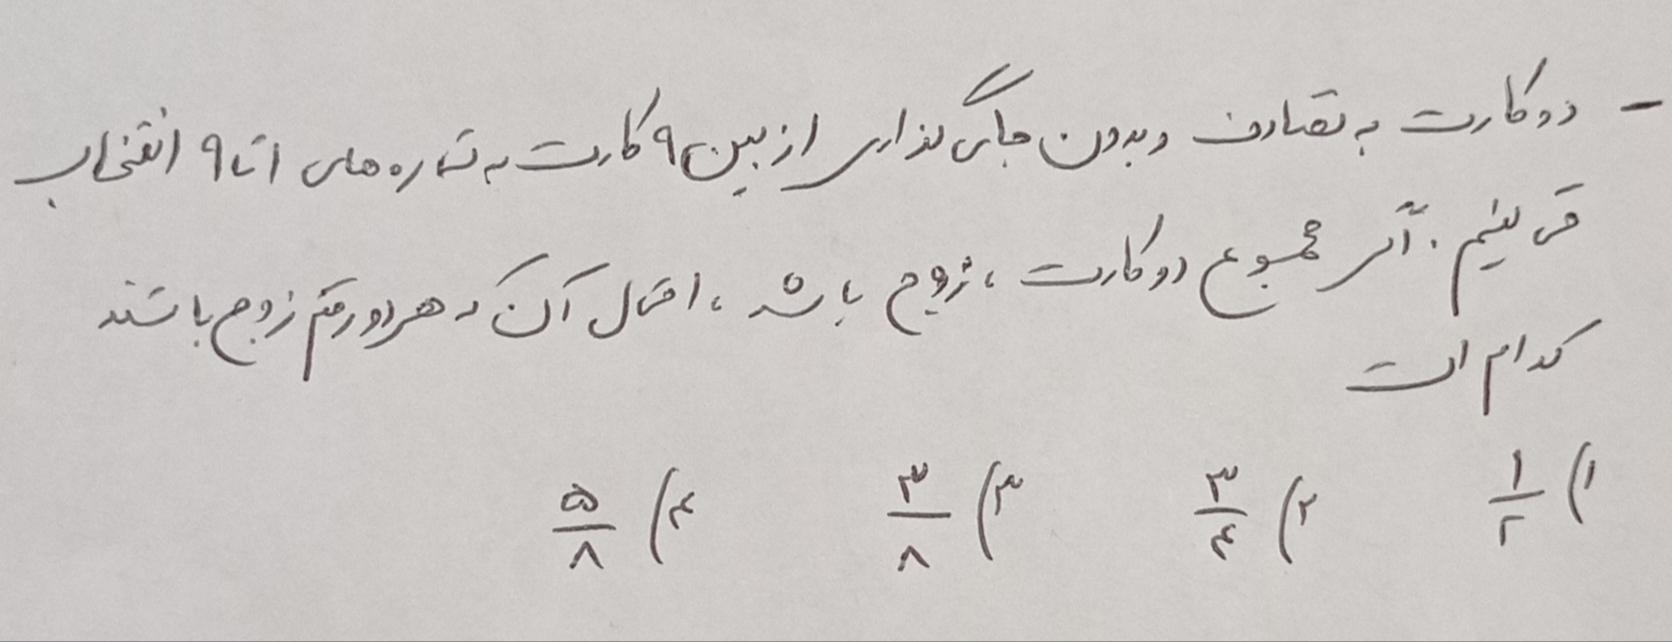 - دو کارت به تصادف و بدون جایگذاری از بین ۹ کارت به شماره های ۱ تا ۹ انتخاب
می کنیم . اگر مجموع دو کارت ، زوج باشد ، احتمال آن که هر دو رقم زوج باشند
کدام است
۱) ۱/۲ ۲) ۳/۴ ۳) ۳/۸ ۴) ۵/۸